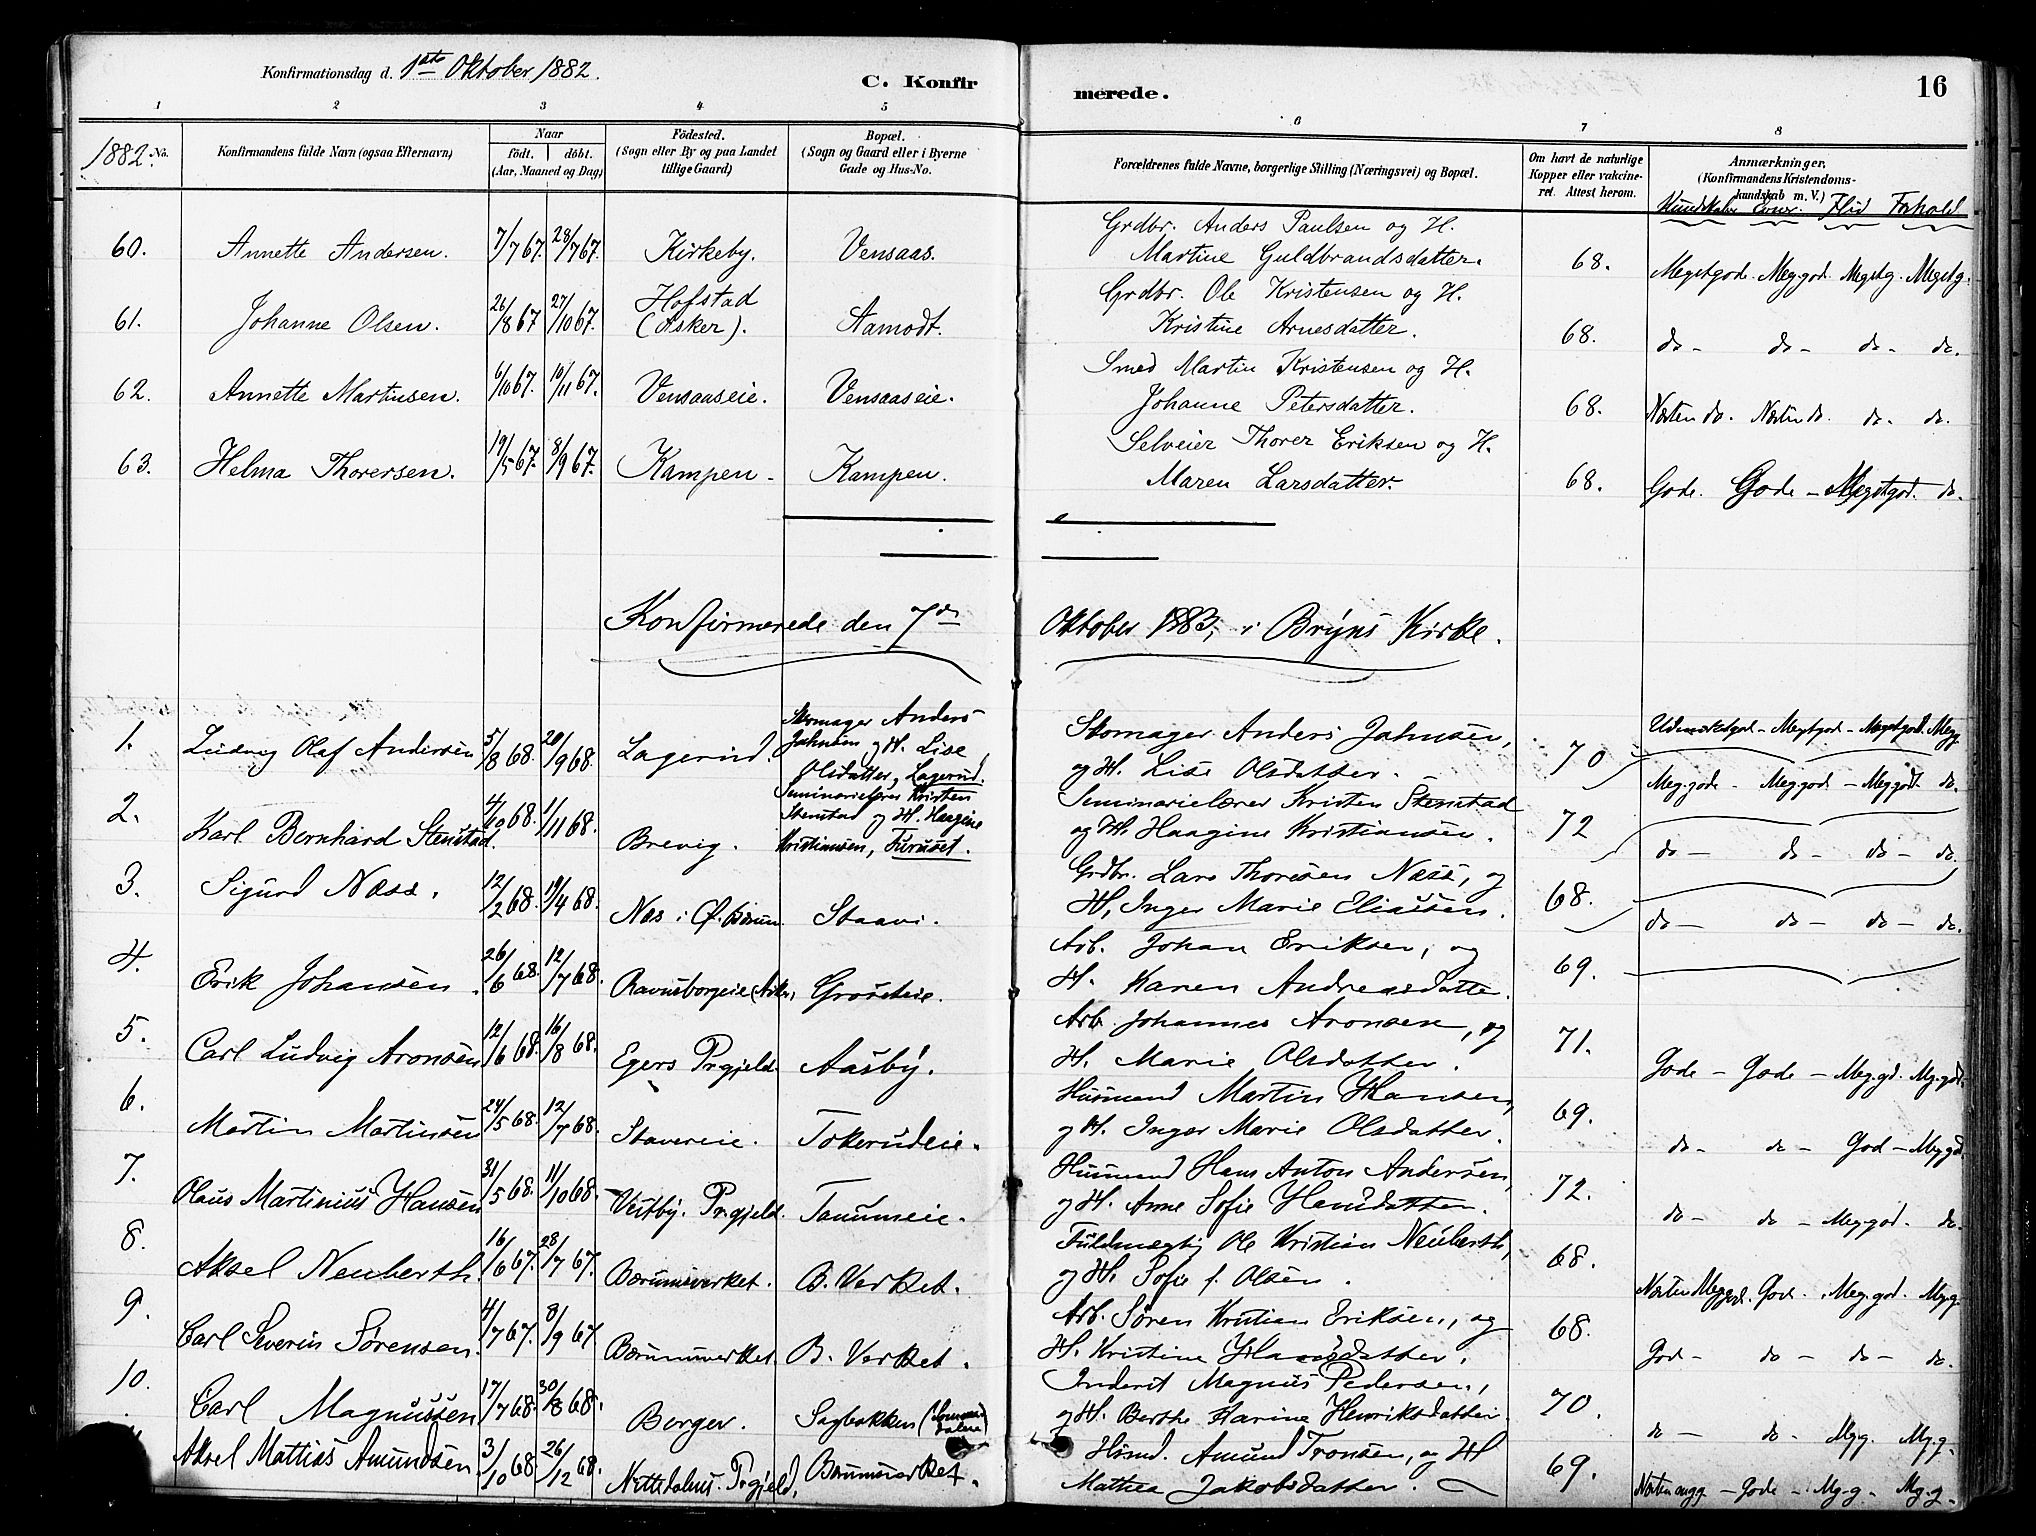 Konfirmationsdag d. 1ste Oktober 1882.
C. Konfirmerede.
16
1 2 3 4 5 6 7 8
1882. No.
Konfirmandens fulde Navn (ogsaa Efternavn)
Naar
födt. döbt.
(Aar, Maaned og Dag)
Födested.
(Sogn eller By og paa Landet
tillige Gaard)
Bopæl.
(Sogn og Gaard eller i Byerne
Gade og Hus-No.
Forældrenes fulde Navne, borgerlige Stilling (Næringsvei) og Bopæl.
Om havt de naturlige
Kopper eller vakcine-
ret. Attest herom.
Anmærkninger,
(Konfirmandens Kristendoms-
kundskab m. V.)
Kundskaber Flid Forhold
60. Annette Andersen. 7/7 67. 28/7 67. Kirkeby. Vensaas. Grdbr. Anders Paulsen og H.
Martine Guldbrandsdatter. 68. Megetgod. Meg.god. Megetg. Megetg.
61. Johanne Olsen. 26/8 67 27/10 67. Hofstad
(Asker). Aamodt. Grdbr. Ole Kristensen og H.
Kristine Arnesdatter. 68. do - do - do - do.
62. Annette Martinsen. 6/10 67. 10/11 67. Vensaaseie. Vensaaseie. Smed Martin Kristensen og H.
Johanne Petersdatter. 68. Næsten do. Næsten do. do. do.
63. Helma Thorersen. 19/5 67. 8/9 67. Kampen. Kampen. Selveier Thorer Eriksen og H.
Maren Larsdatter. 68. Gode. Gode - Megetgod. do.
Konfirmerede den 7de Oktober 1883, i Bryns Kirke.
1. Ludvig Olaf Andersen 5/8 68. 20/9 68. Lagerud. Skomager Anders
Jahnsen og H. Lise
Olsdatter, Lagerud. Skomager Anders Jahnsen,
og H. Lise Olsdatter. 70
2. Karl Bernhard Stenstad. 4/10 68. 1/11 68. Brevig. Seminarielærer Kristen
Stenstad og H. Haagine
Kristiansen, Furuset. Seminarielærer Kristen Stenstad
og H. Haagine Kristiansen. 72 Meg.gode - Meg.god - Meg.godt do.
3. Sigurd Næss. 12/2 68. 19/4 68. Næs i Ø. Bærum Staavi. Grdbr. Lars Thoresen Næss, og
H, Inger Marie Eliassen. 68. do - do - do - do.
4. Erik Johansen. 26/6 68. 12/7 68. Groseteie. Arb. Johan Eriksen, og
H. Karen Andreasdatte. 69. do - do - do - do.
5. Carl Ludvig Aronsen 12/6 68. 16/8 68. Egers Prgjeld. Aasby. Arb. Johannes Aronsen, og
H. Marie Olsdatter. 71. Gode - Gode - Meg.gd. Mg.god.
6. Martin Martinsen 24/5 68. 12/7 68. Stavereie. Tokerudeie. Husmand Martin Hansen,
og H. Inger Marie Olsdatter. 69. do - do - God - Meg.god.
7. Olaus Martinius Hansen 31/5 68. 11/10 68. Vestby. Prgjeld. Tanumeie. Husmand Hans Anton Andersen,
og H. Anne Sofie Hansdatter. 72. do - do - Meg.god. do.
8. Aksel Neuberth. 16/6 67. 28/7 67. Bærumsverket. B. Verket. Fuldmægtig Ole Kristian Neuberth,
og H. Sofie f. Olsen. 68. Næsten Meg.god. God. Meg.god. Mg.g.
9. Carl Severin Sørensen. 4/7 67. 8/9 67. Bærumsverket. B. Verket. Arb. Søren Kristian Eriksen, og
H. Kristine Hansdatter. 68. God - do - do - do.
10. Carl Magnussen 17/7 68. 30/8 68. Berger. Sagbakken Inderst Magnus Pedersen,
og H. Berthe Karine Henriksdatter. 70. do - do - Mg.g. Mg.g.
Aksel Mattias Amundsen. 3/10 68. 26/12 68. Nittedalens Prgjeld. Bærumsverket. Husmd. Amund Tronsen, og H
Mathea Jakobsdatter. 69. Gode - Mg.g - Mg.g.